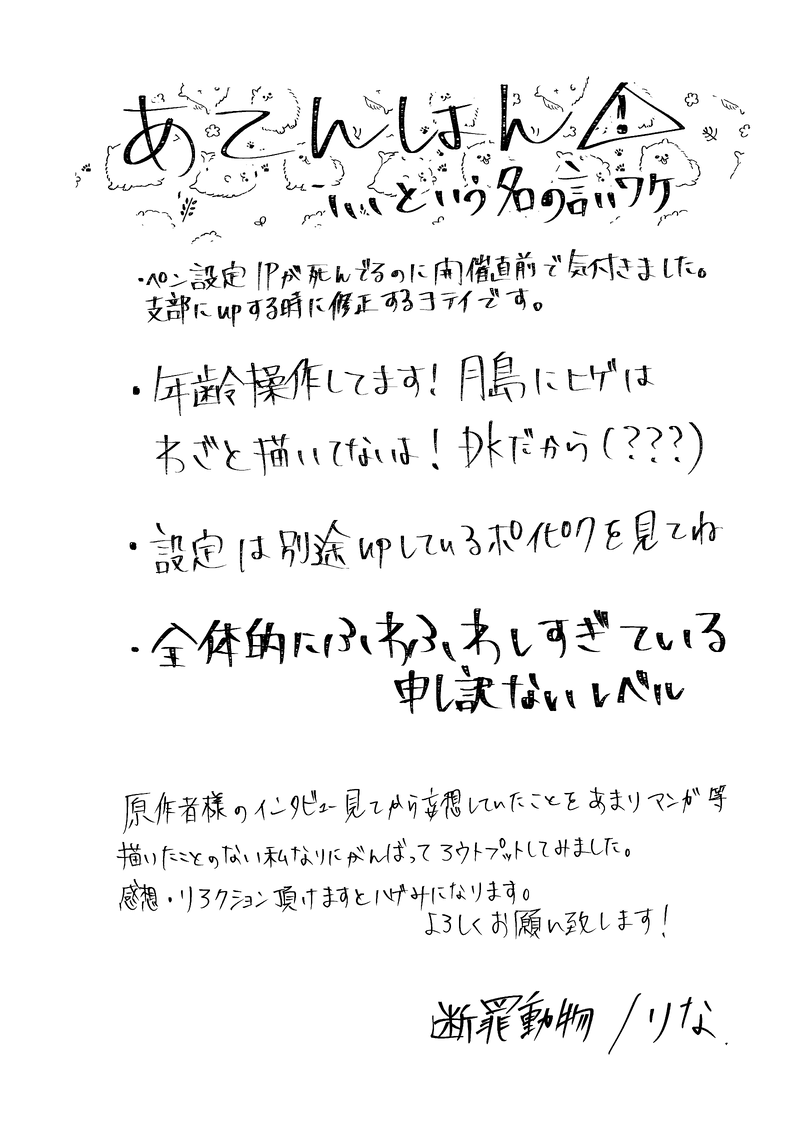 あてんしょん
!
…という名の言いワケ
・ペン設定1Pが死んでるのに開催直前で気付きました。
支部にupする時に修正するヨテイです。
・年齢操作してます! 月島にヒゲは
わざと描いてないよ! DKだから(???)
・設定は別途upしているポイピクを見てね
・全体的にふわふわしすぎている
申し訳ないレベル
原作者様のインタビュー見てから妄想していたことをあまりマンガ等
描いたことのない私なりにがんばってアウトプットしてみました。
感想・リアクション頂けますとハゲみになります。
よろしくお願い致します!
断罪動物/りな.